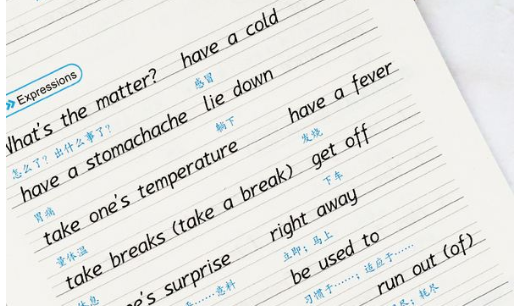 Expressions
What's the matter? have a cold
怎么了？出什么事了？ 感冒
have a stomachache lie down
胃痛 躺下
take one's temperature have a fever
量体温 发烧
take breaks (take a break) get off
休息 下车
one's surprise right away
……意料 立即；马上
be used to
习惯于……；适应于……
run out (of)
耗尽